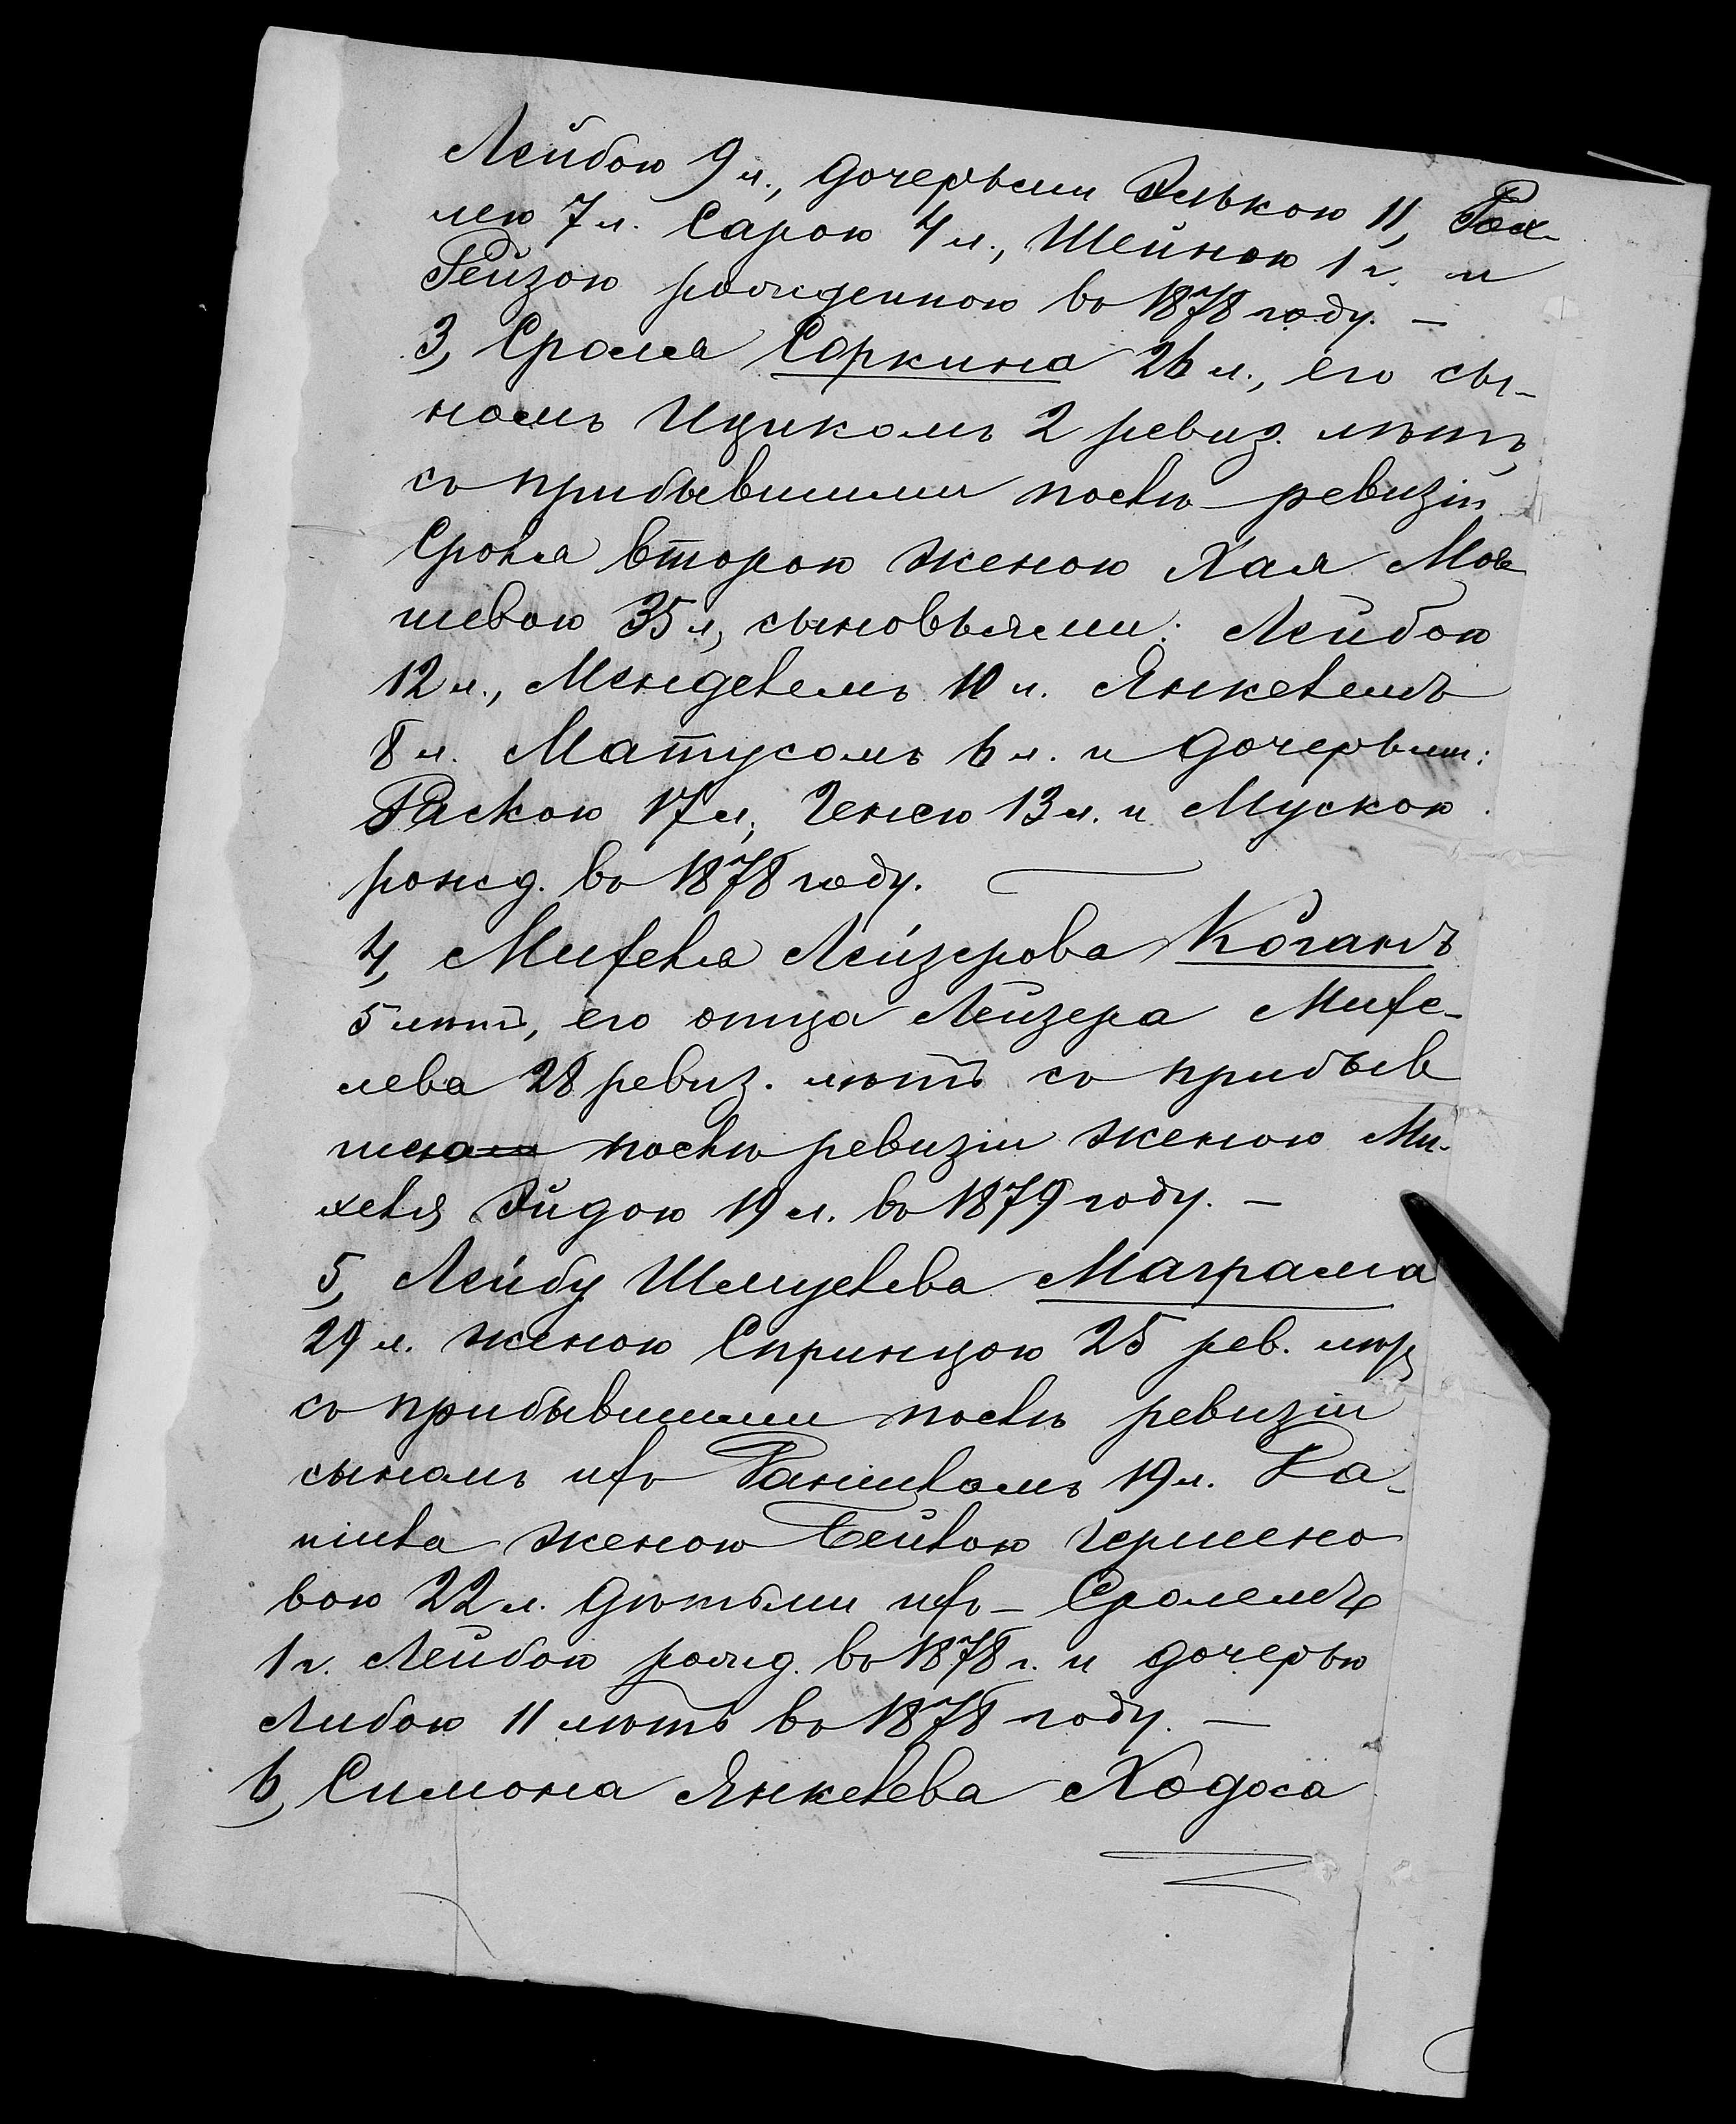 Лейбою 9 л., дочерьми Элькою 11, Рох-
лею 7 л. Сарою 4 л., Шейною 1 г. и
Рейзою рожденною въ 1878 году. —
3, Сроля Соркина 26 л., его сы-
номъ Ицикомъ 2 ревиз. лѣтъ,
съ прибывшими послѣ ревизіи
Сроля второю женою Хая Мов
шевою 35 л, сыновьями: Лейбою
12 л., Менделемъ 10 л. Янкелемъ
8 л. Матусомъ 6 л. и дочерьми:
Раскою 17 л, Генею 13 л. и Мускою
рожд. въ 1878 году.
4, Михеля Лейзерова Коганъ
5 лѣтъ, его отца Лейзера Михе-
лева 28 ревиз. лѣтъ съ прибыв
шею послѣ ревизіи женою Ми-
хеля Эйдою 19 л. въ 1879 году. —
5, Лейбу Шмуелева Маграма
29 л. женою Спринцою 25 рев. лѣтъ
съ прибывшими послѣ ревизіи
сыномъ ихъ Файшломъ 19 л. Фа-
йшла женою Бейлою Гершено
вою 22 л. дѣтьми ихъ — Сролемъ
1 г. Лейбою рожд. въ 1878 г. и дочерью
Либою 11 лѣтъ въ 1878 году. —
6, Симона Янкелева Ходоса